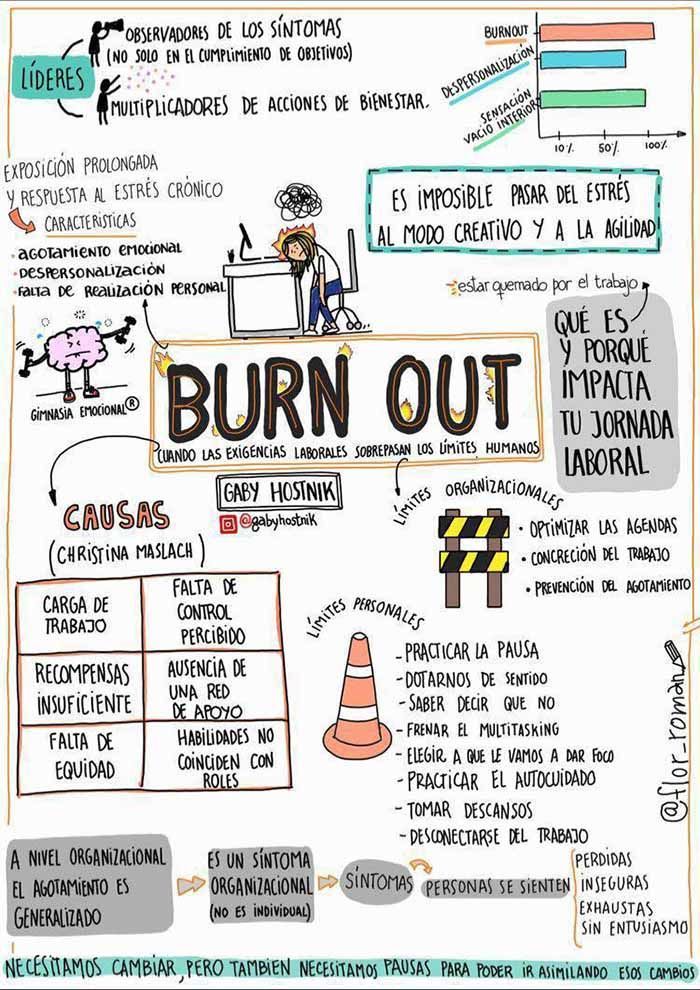 OBSERVADORES DE LOS SÍNTOMAS
(NO SOLO EN EL CUMPLIMIENTO DE OBJETIVOS)
LÍDERES
MULTIPLICADORES DE ACCIONES DE BIENESTAR.
BURNOUT
DESPERSONALIZACIÓN
SENSACIÓN
VACIO INTERIOR
10% 50% 100%
EXPOSICIÓN PROLONGADA
Y RESPUESTA AL ESTRÉS CRÓNICO
CARACTERISTICAS
• AGOTAMIENTO EMOCIONAL
• DESPERSONALIZACIÓN
• FALTA DE REALIZACIÓN PERSONAL
ES IMPOSIBLE PASAR DEL ESTRÉS
AL MODO CREATIVO Y A LA AGILIDAD
estar quemado por el trabajo
QUÉ ES
Y PORQUÉ
IMPACTA
TU JORNADA
LABORAL
GIMNASIA EMOCIONAL®
BURN OUT
CUANDO LAS EXIGENCIAS LABORALES SOBREPASAN LOS LÍMITES HUMANOS
GABY HOSTNIK
@gabyhostnik
CAUSAS
(CHRISTINA MASLACH)
CARGA DE
TRABAJO
FALTA DE
CONTROL
PERCIBIDO
RECOMPENSAS
INSUFICIENTE
AUSENCIA DE
UNA RED
DE APOYO
FALTA DE
EQUIDAD
HABILIDADES NO
COINCIDEN CON
ROLES
LÍMITES ORGANIZACIONALES
• OPTIMIZAR LAS AGENDAS
• CONCRECIÓN DEL TRABAJO
• PREVENCIÓN DEL AGOTAMIENTO
LÍMITES PERSONALES
- PRACTICAR LA PAUSA
- DOTARNOS DE SENTIDO
- SABER DECIR QUE NO
- FRENAR EL MULTITASKING
- ELEGIR A QUE LE VAMOS A DAR FOCO
- PRACTICAR EL AUTOCUIDADO
- TOMAR DESCANSOS
- DESCONECTARSE DEL TRABAJO
@flor_roman
A NIVEL ORGANIZACIONAL
EL AGOTAMIENTO ES
GENERALIZADO
ES UN SÍNTOMA
ORGANIZACIONAL
(NO ES INDIVIDUAL)
SÍNTOMAS
PERSONAS SE SIENTEN
PERDIDAS
INSEGURAS
EXHAUSTAS
SIN ENTUSIASMO
NECESITAMOS CAMBIAR, PERO TAMBIEN NECESITAMOS PAUSAS PARA PODER IR ASIMILANDO ESOS CAMBIOS